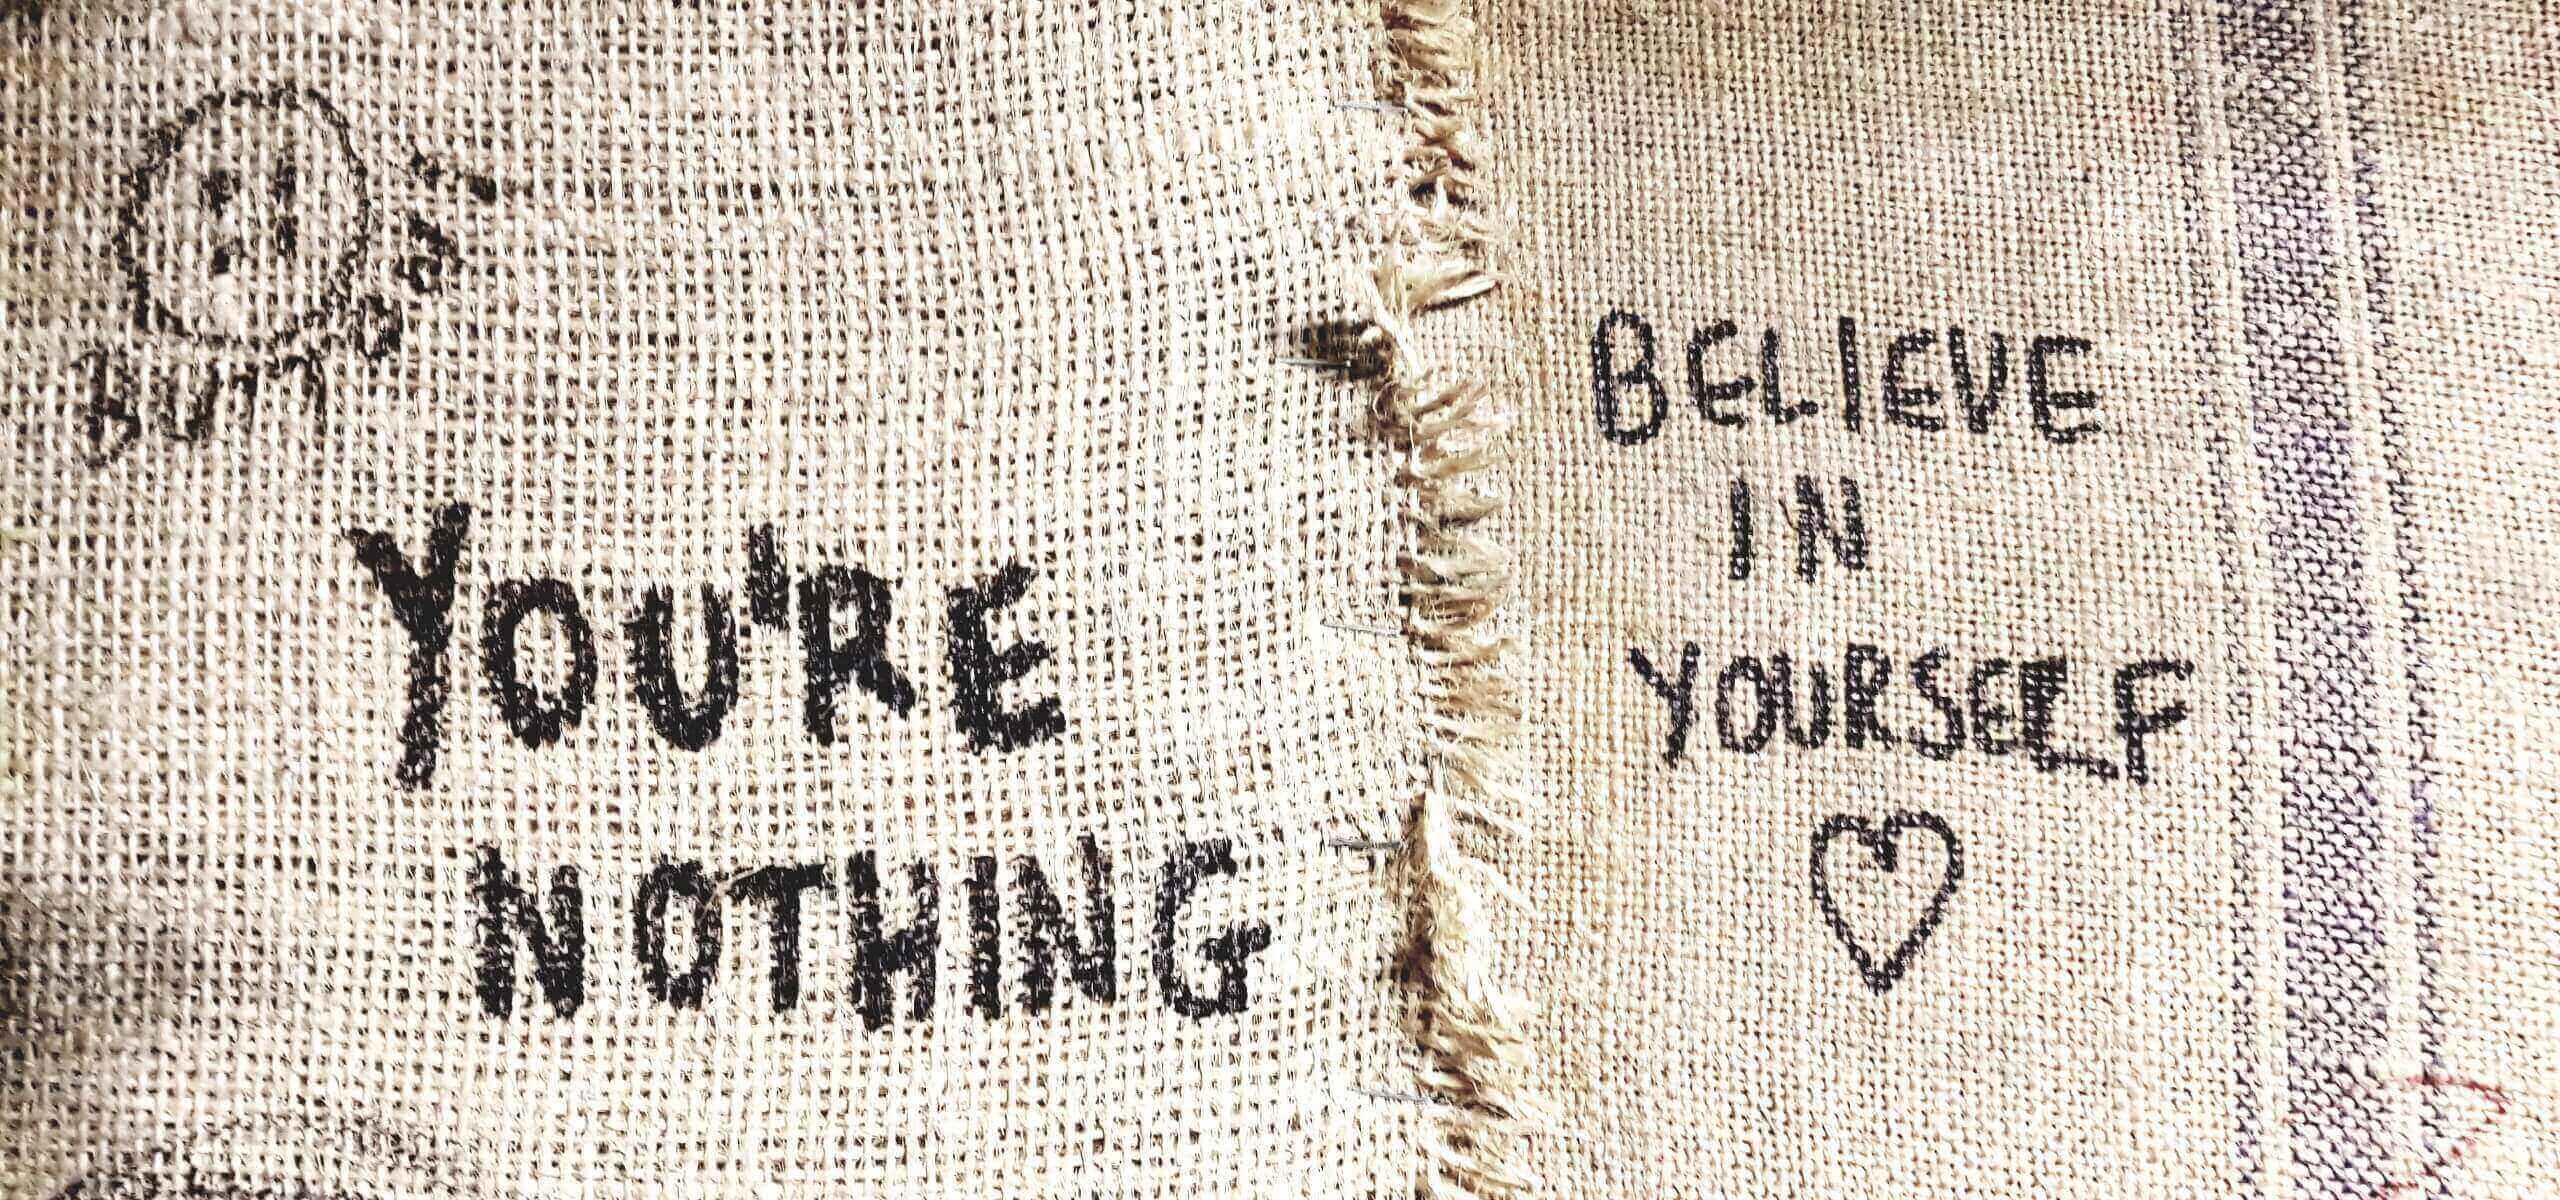 YOU'RE
NOTHING
BELIEVE
IN
YOURSELF